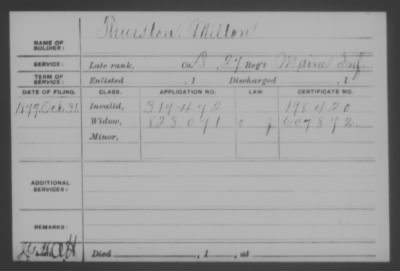 Thurston Milton
NAME OF SOLDIER:
SERVICE: Late rank, Co. B, 27 Reg't Maine Inf.
TERM OF SERVICE: Enlisted , 1 Discharged , 1
DATE OF FILING. CLASS. APPLICATION NO. LAW. CERTIFICATE NO.
1879 Oct. 31 Invalid, 319472 178420
Widow, 823071 607872
Minor,
ADDITIONAL SERVICES:
REMARKS:
Died , 1 , at